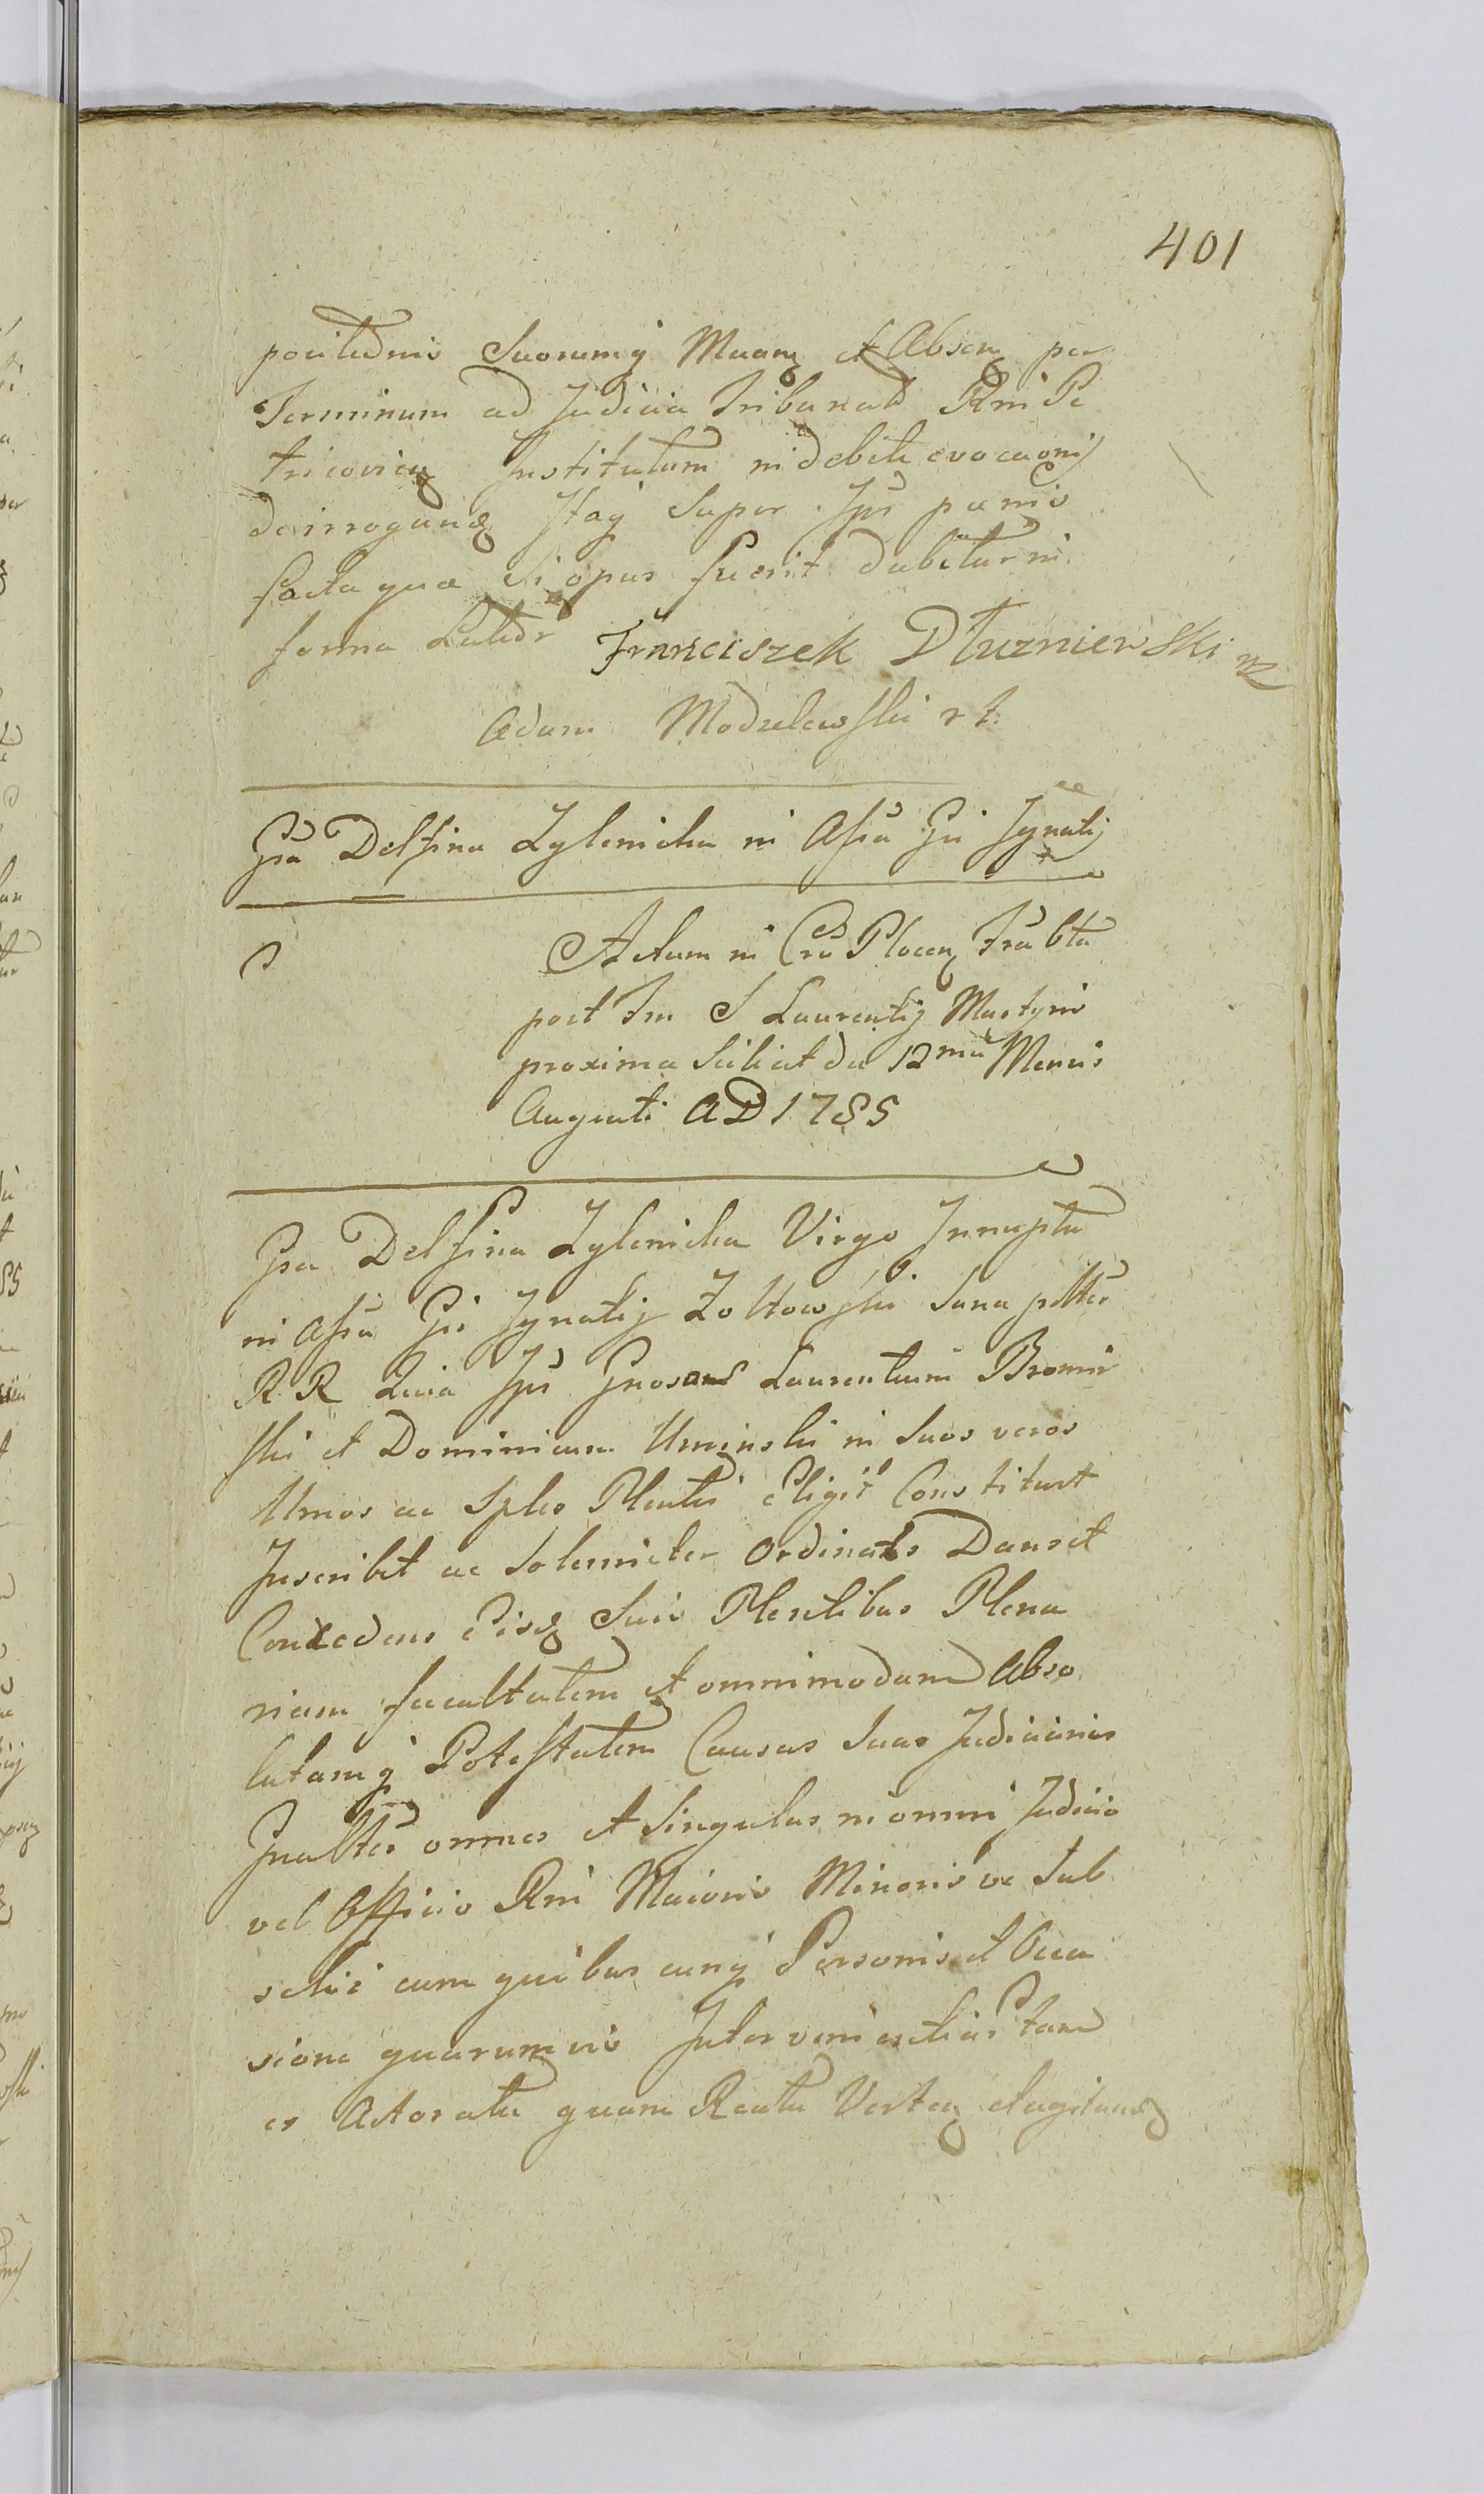 401
positionis Suorumq Muarz et Absenz per
Terminum ad Judicia Tribunald Rni Pe
tricovienz Institutum indebite evocaonis
de irrogandz Itaq Super Ips pœnis
facta quæ Si opus fuerit dabitur in
forma Latiori Franciszek Dłuzniewski mp
Adam Modzelewski r t:
Gsa Delfina Zylenicka in Assa Gi Ignatij
Actum in Cro Plocenz Fra 6ta
post Fm S Laurentij Martyris
proxima Scilicet die 12ma Mensis
Augusti AD 1785
Gsa Delfina Zylenicka Virgo Innupta
in Assa Gi Ignatij Zołtowski Sana pltter
R R Quia Ips Gnosos Laurentium Bromir
ski et Dominicum Uminski in Suos veros
Umos ac Splos Plentes Eligit Constituit
Inscribit ac Solemniter Ordinat Dans et
Concedens Eisdz Suis Plentibus Plena
riam facultatem et omnimodam Abso
lutamq Potestatem Causas Suas Judiciarias
Gnaltes omnes et Singulas in omni Judicio
vel Officio Rni Maioris Minoris ve Sub
sellii cum quibuscunq Personis et Occa
sione quarumvis Intervenientias tam
ex Actoratu quam Reatu Vertenz et agitandz